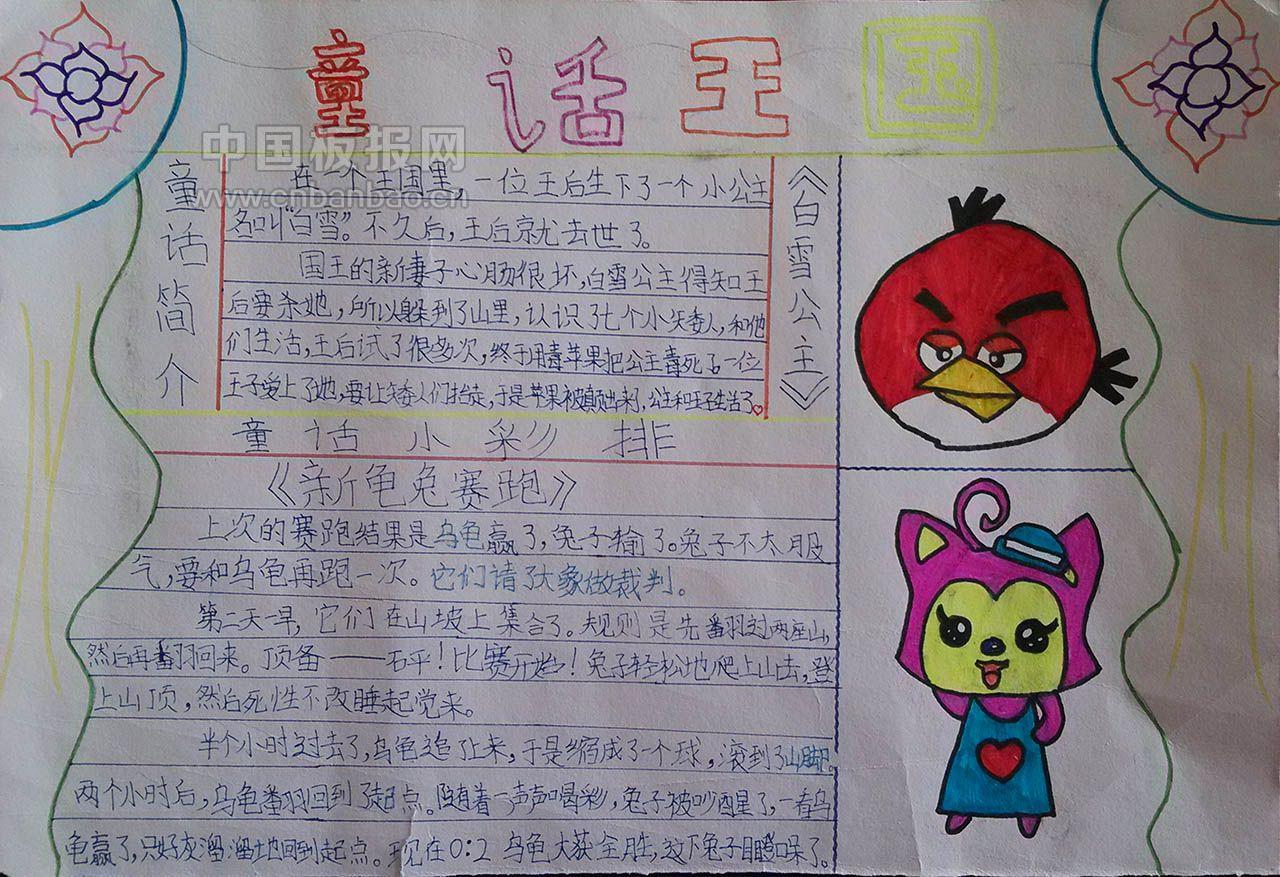 童话王国
中国板报网
www.cnbanbao.cn
童话简介
在一个王国里,一位王后生下了一个小公主
名叫“白雪”。不久后,王后就去世了。
国王的新妻子心肠很坏,白雪公主得知王
后要杀她,所以躲到了山里,认识了七个小矮人,和他
们生活,王后试了很多次,终于用毒苹果把公主毒死了一位
王子爱上了她,要让矮人们抬走,于是苹果被颠出来,公主和王子生活了
《白雪公主》
童话小彩排
《新龟兔赛跑》
上次的赛跑结果是乌龟赢了,兔子输了。兔子不大服
气,要和乌龟再跑一次。它们请了大象做裁判。
第二天一早,它们在山坡上集合了。规则是先翻过两座山,
然后再翻回来。预备——砰!比赛开始!兔子轻松地爬上山去,登
上山顶,然后死性不改睡起觉来。
半个小时过去了,乌龟追了上来,于是缩成了一个球,滚到了山脚。
两个小时后,乌龟翻回到了起点。随着一声声喝彩,兔子被吵醒了,一看乌
龟赢了,只好灰溜溜地回到起点。现在0:2 乌龟大获全胜,这下兔子目瞪口呆了。